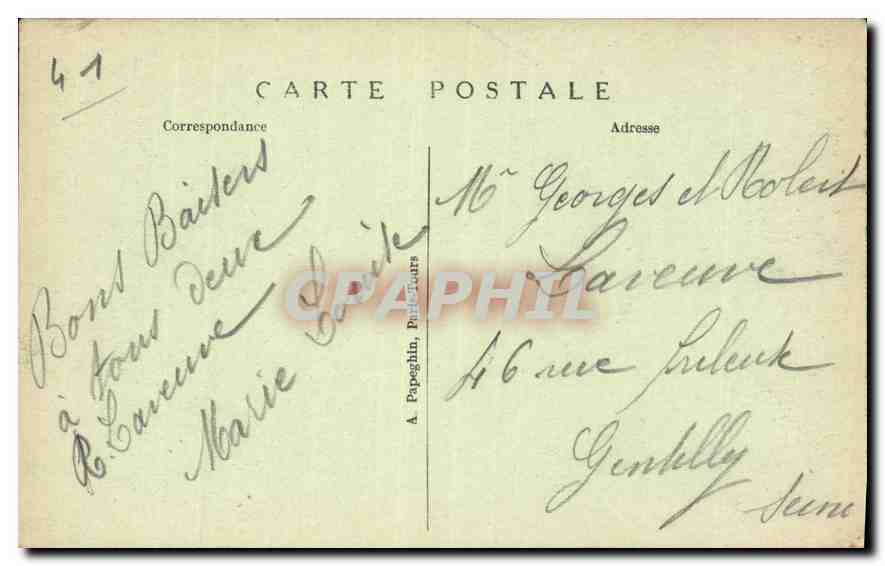 41
CARTE POSTALE
Correspondance
Adresse
Bons Baisers
à tous deux
R. Laveuve
Marie Louise
A. Papeghin, Paris-Tours
CPAPHIL
Mr Georges et Robert
Laveuve
46 rue
Gentilly
Seine